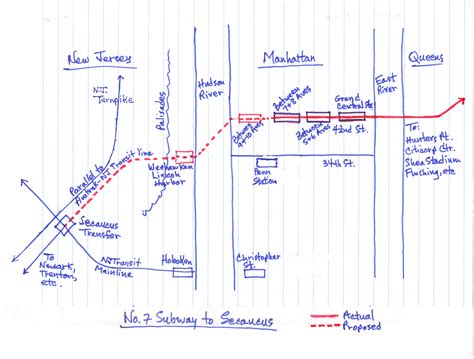 New Jersey
Manhattan
Queens
N.J.
Turnpike
Palisades
Hudson
River
East
River
Between
9+10 Aves
Between
7+8 Aves
Between
5+6 Aves
Grand
Central Stn.
42nd St.
To:
Hunters Pt.
Citicorp Ctr.
Shea Stadium
Flushing, etc
Parallel to
Amtrak-NJ Transit line
Weehawken
Lincoln
Harbor
34th St.
Penn
Station
Secaucus
Transfer
To
Newark,
Trenton,
etc.
NJTransit
Mainline
Hoboken
Christopher
St.
No. 7 Subway to Secaucus
Actual
Proposed